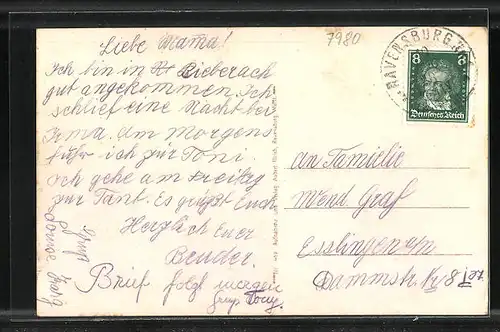 Liebe Mama!
7980
RAVENSBURG
8 8
Deutsches Reich
Ich bin in Bieberach
gut angekommen. Ich
schlief eine Nacht bei
Irma. am Morgens
fuhr ich zur Toni.
Ich gehe am Freitag
zur Tant. Es grüßt Euch
Herzlich Euer
Bruder.
Brief folgt morgen
Gruß Tony.
Gruß
an Familie
Wend Graf
Esslingen a/n
Dammstr. Nr 8